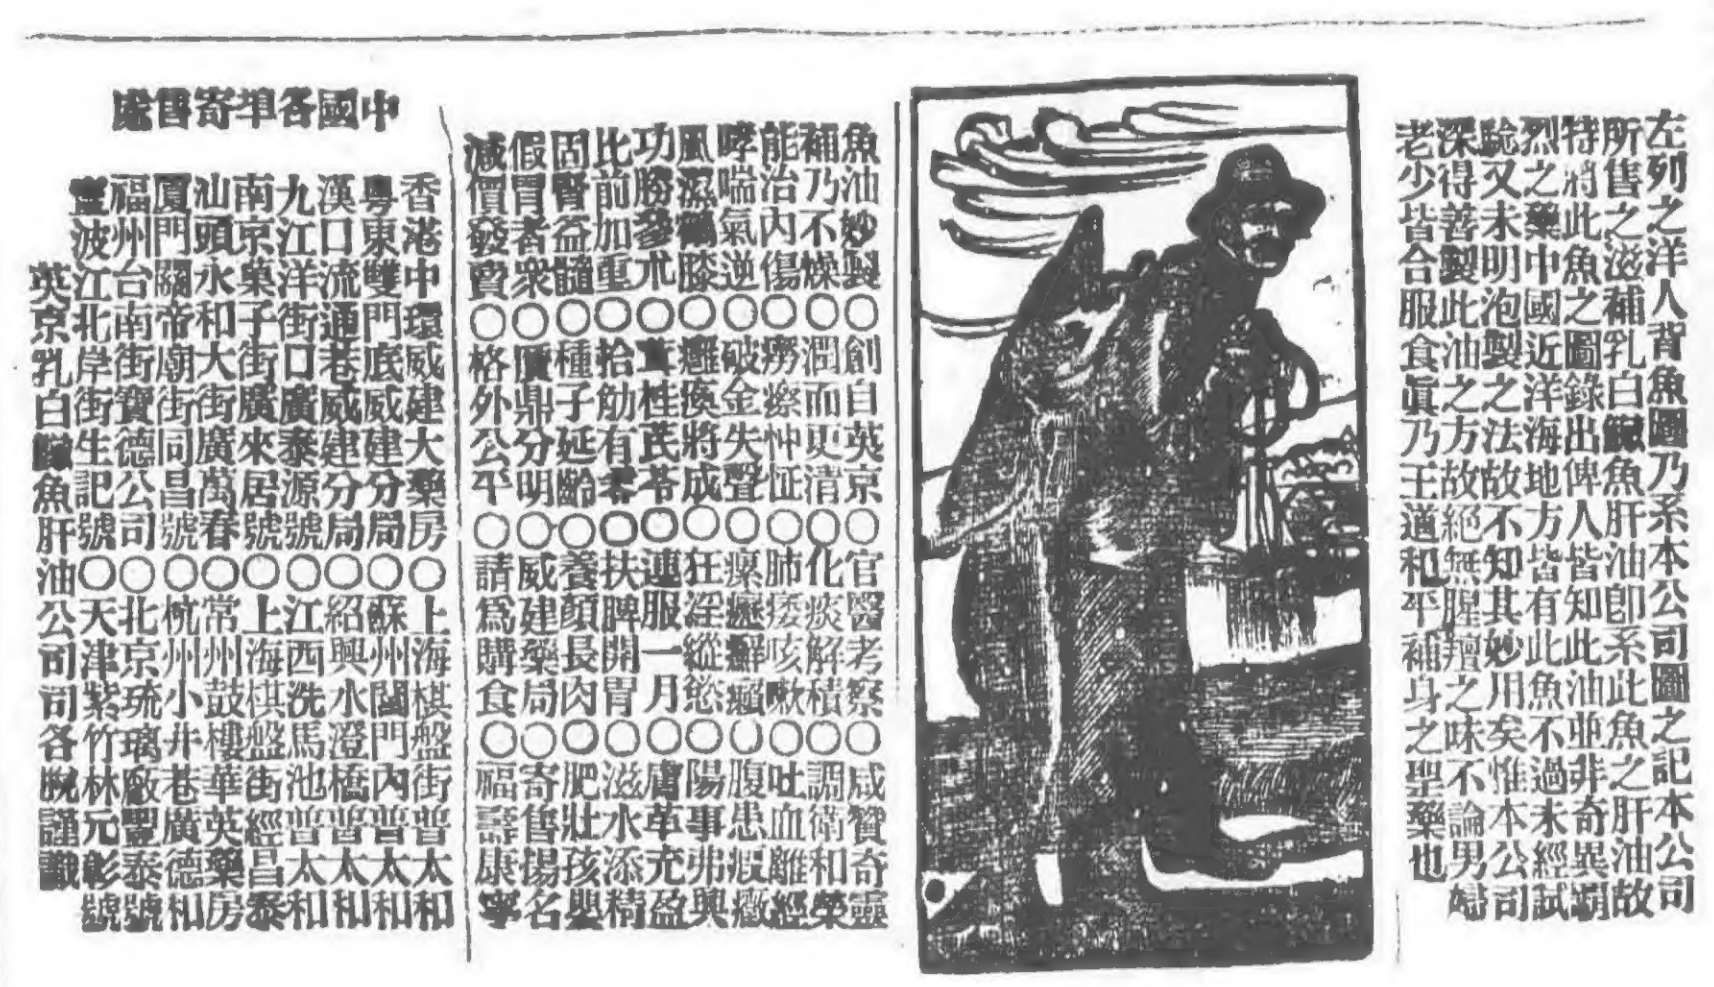 左列之洋人背魚圖乃系本公司圖之記本公司
所售之滋補乳白鰵魚肝油卽系此魚之肝油故
特將此魚之圖錄出俾人皆知此油並非奇異霸
烈之藥中國近洋海地方皆有此魚不過未經試
騐又未明泡製之法故不知其妙用矣惟本公司
深得善製此油之方故絕無腥羶之味不論男婦
老少皆合服食眞乃王道和平補身之聖藥也
魚油妙製○創自英京○官醫考察○咸贊奇靈
補乃不燥○潤而更清○化痰解積○調衛和榮
能治內傷○癆瘵忡怔○肺痿咳嗽○吐血離經
哮喘氣逆○破金失聲○瘰癧癬癩○腹患瘕癥
風濕鶴膝○癱瘓將成○狂淫縱慾○陽事弗興
功勝參朮○茸桂茋苓○連服一月○膚革充盈
比前加重○拾觔有零○扶脾開胃○滋水添精
固腎益髓○種子延齡○養顏長肉○肥壯孩嬰
假冒者衆○贋鼎分明○威建藥局○寄售揚名
減價發賣○格外公平○請爲購食○福壽康寧
中國各埠寄售處
香港中環威建大藥房○上海棋盤街普太和
粵東雙門底威建分局○蘇州閶門內普太和
漢口流通巷威建分局○紹興水澄橋普太和
九江洋街口廣泰源號○江西洗馬池普太和
南京菓子街廣來居號○上海棋盤街經昌泰
汕頭永和大街廣萬春○常州鼓樓華英藥房
厦門關帝廟街同昌號○杭州小井巷廣德和
福州台南街寶德公司○北京琉璃廠豐泰號
寧波江北岸街生記號○天津紫竹林元彰號
英京乳白鰵魚肝油公司司各脫謹識